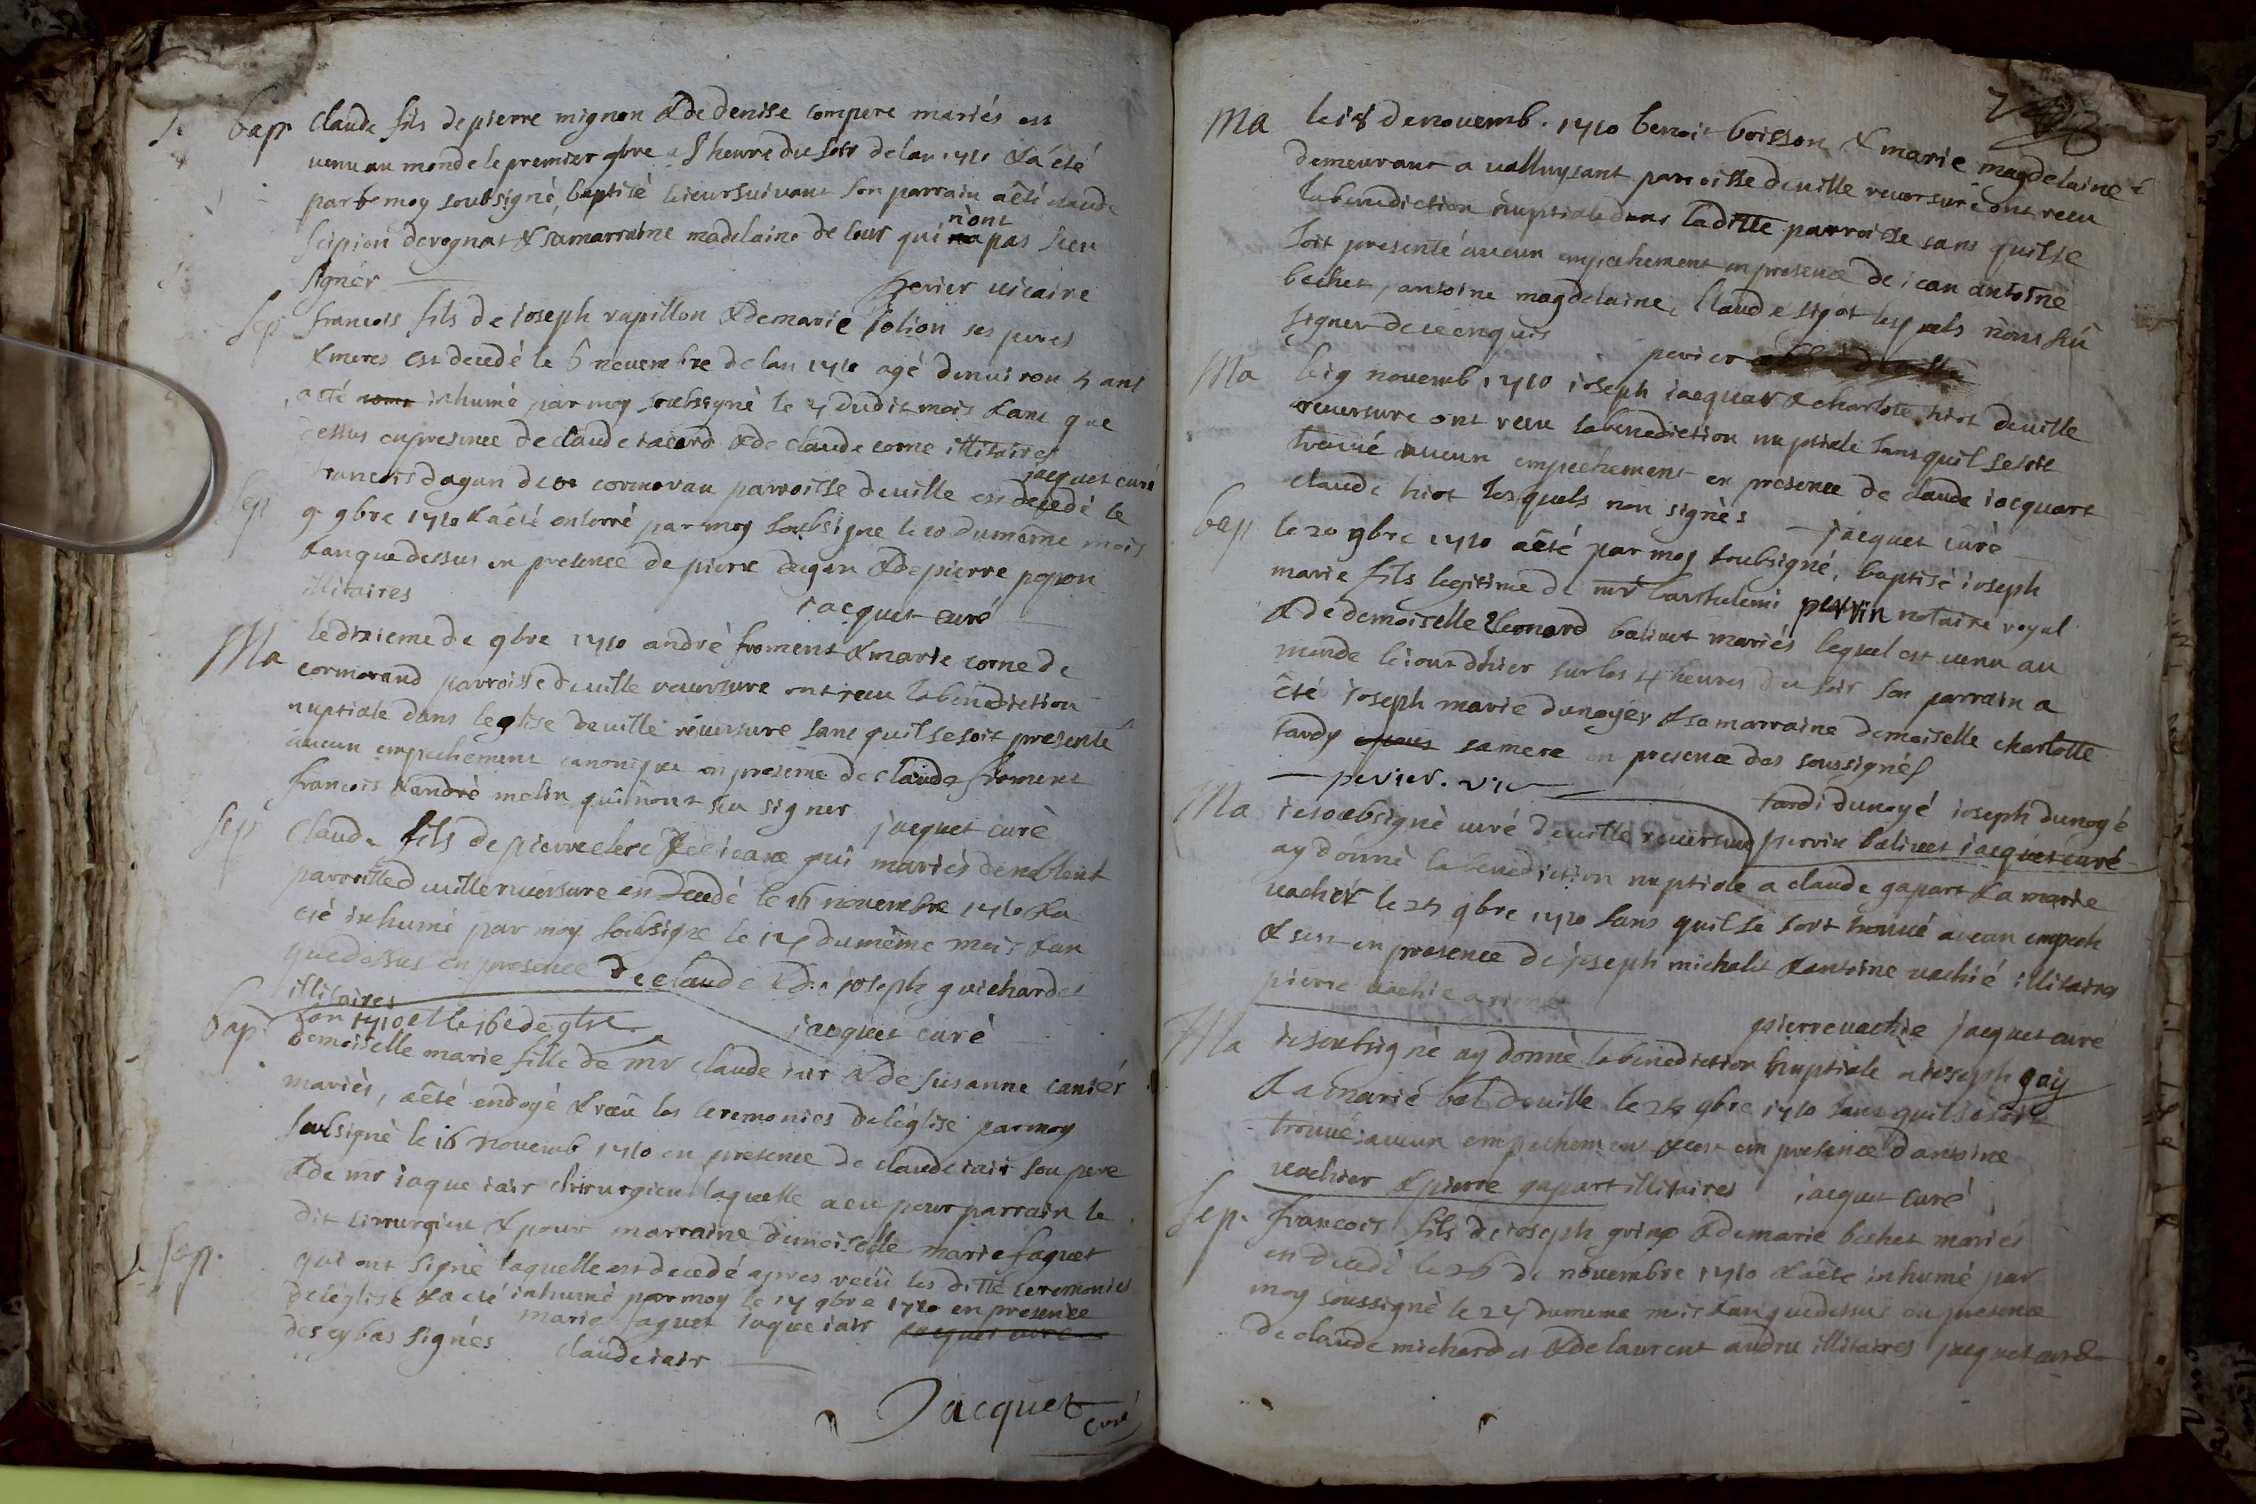 bap Claude fils de pierre mignon & de denise compere mariés est
venu au monde le premier 9bre a 8 heure du soir de lan 1710 & a été
par moy soubsigné, baptisé le iour suivant son parrain a été claude
scipion devognat & sa marraine madelaine de lour qui n'ont pas sceu
signér
perier vicaire
sep francois fils de ioseph rapillon & de marie jolion ses peres
& meres est decedé le 6 novembre de lan 1710 agé denviron 4 ans
a été inhumé par moy soubsigné le 7 dudit mois & an que
dessus en presence de claude iacard & de claude corne illitaires
jacquet curé
sep francois dagan de cormoran parroisse de ville est decedé le
9 9bre 1710 & a été enterré par moy soubsigne le 10 du même mois
& an que dessus en presence de pierre dagan & de pierre popon
illitaires
iacquet curé
Ma le dixieme de 9bre 1710 andrè froment & marie corne de
cormorand parroisse de ville reversure ont receu la benediction
nuptiale dans leglise de ville reversure sans quil se soit presenté
aucun empechement canonique en presence de claude froment
francois & andrè melin qui nont sçu signer
jacquet curè
sep Claude fils de pierre clerc & de ieane gui mariès de noblent
parroisse de ville reversure est decedé le 16 novembre 1710 & a
eté inhumé par moy soubsigne le 17 du même mois & an
que dessus en presence de claude & de joseph guichardet
illitaires
jacquet curè
bap lan 1710 et le 16e de 9bre
Demoiselle marie fille de mr claude iair & de susanne canier
mariès, a été endoyé & reçû les ceremonies de l'église par moy
soubsignè le 16 novemb 1710 en presence de claude iair son pere
& de mr iaque iair chirurgien laquelle a eu pour parrain le
dit cirrurgien & pour marraine dimoiselle marie faguet
sep. qui ont signé laquelle est decedé apres reçû les ditte ceremonies
de léglise & a eté inhumè par moy le 17 9bre 1710 en presence
des cy bas signés marie faguet iaque iair jacquet curé
claude iair
Jacquet curé
Ma le 18 de novemb. 1710 benoit boisson & marie magdelaine
demeurant a valluysant parroisse de ville reversure ont receu
la benediction nuptiale dans laditte parroisse sans quil se
soit presenté aucun empechement en presence de iean antoine
bechet, antoine magdelaine, claude sigot lesquels nont sçû
signer de ce enquis
perier
Ma le 19 novemb 1710 ioseph iacquar & charlote tiot de ville
reversure ont receu la benediction nuptiale sans quil se soit
trouvé aucun empechement en presence de claude iacquart
claude tiot lesquels non signés
jacquet curè
bap le 20 9bre 1710 a été par moy soubsigné, baptisé ioseph
marie fils legitime de mr barthelemi pervin notaire royal
& de demoiselle leonard balivet mariés lequel est venu au
monde le iour dhier sur les 4 heures du soir son parrain a
êté ioseph marie dunoyer & sa marraine demoiselle charlotte
tardy sa mere en presence des soussignés
perier. vic
tardi dunoyé ioseph dunoyé
pervin balivet iacquet curé
Ma ie soubsignè curé de ville reversure
ay donnè la benediction nuptiale a claude gapart & a marie
vachér le 25 9bre 1710 sans quil se soit trouvé aucun empech
& ce en presence de joseph michalet & antoine vachié illitaires
pierre vachie
pierre vachie jacquet curé
Ma ie soubsigné ay donnè la benediction nuptiale a ioseph gay
& a marié bal de ville le 25 9bre 1710 sans quil se soit
trouvé aucun empechement & ce en presence d'antoine
vachier & pierre gapart illitaires iacquet curé
sep. francois fils de ioseph & de marie bechet mariés
est decedé le 26 de novembre 1710 & a été inhumé par
moy soussigné le 27 du meme mois & an que dessus en presence
de claude michardet & de laurent andru illitaires jacquet curé